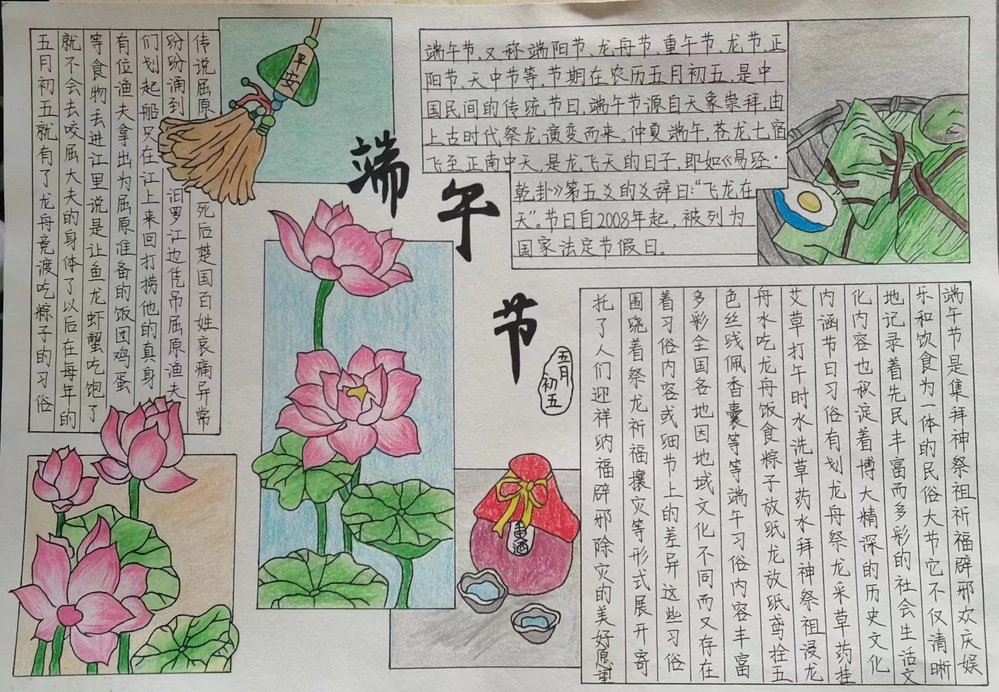 端午节
五月初五
平安
端午节、又称端阳节、龙舟节、重午节、龙节、正
阳节、天中节等，节期在农历五月初五，是中
国民间的传统节日，端午节源自天象崇拜，由
上古时代祭龙演变而来。仲夏端午，苍龙七宿
飞至正南中天，是龙飞天的日子，即如《易经·
乾卦》第五爻的爻辞曰："飞龙在
天"。节日自2008年起，被列为
国家法定节假日。
传说屈原死后楚国百姓哀痛异常
纷纷涌到汨罗江边凭吊屈原渔夫
们划起船只在江上来回打捞他的真身
有位渔夫拿出为屈原准备的饭团鸡蛋
等食物去进江里说是让鱼龙虾蟹吃饱了
就不会去咬屈大夫的身体了以后在每年的
五月初五就有了龙舟竞渡吃粽子的习俗
端午节是集拜神祭祖祈福辟邪欢庆娱
乐和饮食为一体的民俗大节它不仅清晰
地记录着先民丰富而多彩的社会生活文
化内容也积淀着博大精深的历史文化
内涵节日习俗有划龙舟祭龙采草药挂
艾草打午时水洗草药水拜神祭祖浸龙
舟水吃龙舟饭食粽子放纸龙放纸鸢拴五
色丝线佩香囊等等端午习俗内容丰富
多彩全国各地因地域文化不同而又存在
着习俗内容或细节上的差异这些习俗
围绕着祭龙祈福攘灾等形式展开寄
托了人们迎祥纳福辟邪除灾的美好愿望
黄酒